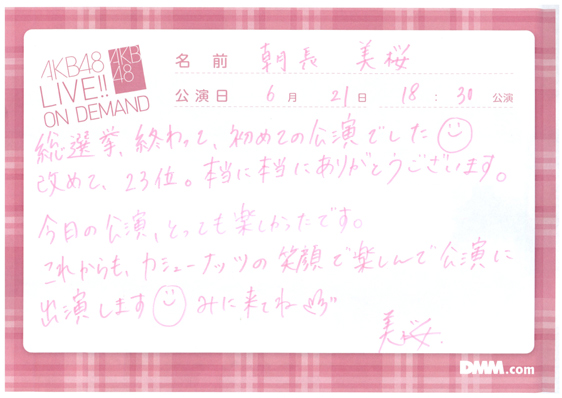 AKB48
LIVE!!
ON DEMAND
AKB
48
名 前 朝長 美桜
公演日 6 月 21 日 18 : 30 公演
総選挙、終わって、初めての公演でした
改めて、23位。本当に本当にありがとうございます。
今日の公演、とっても楽しかったです。
これからも、カシューナッツの笑顔で楽しんで公演に
出演します みに来てね
美桜
DMM.com